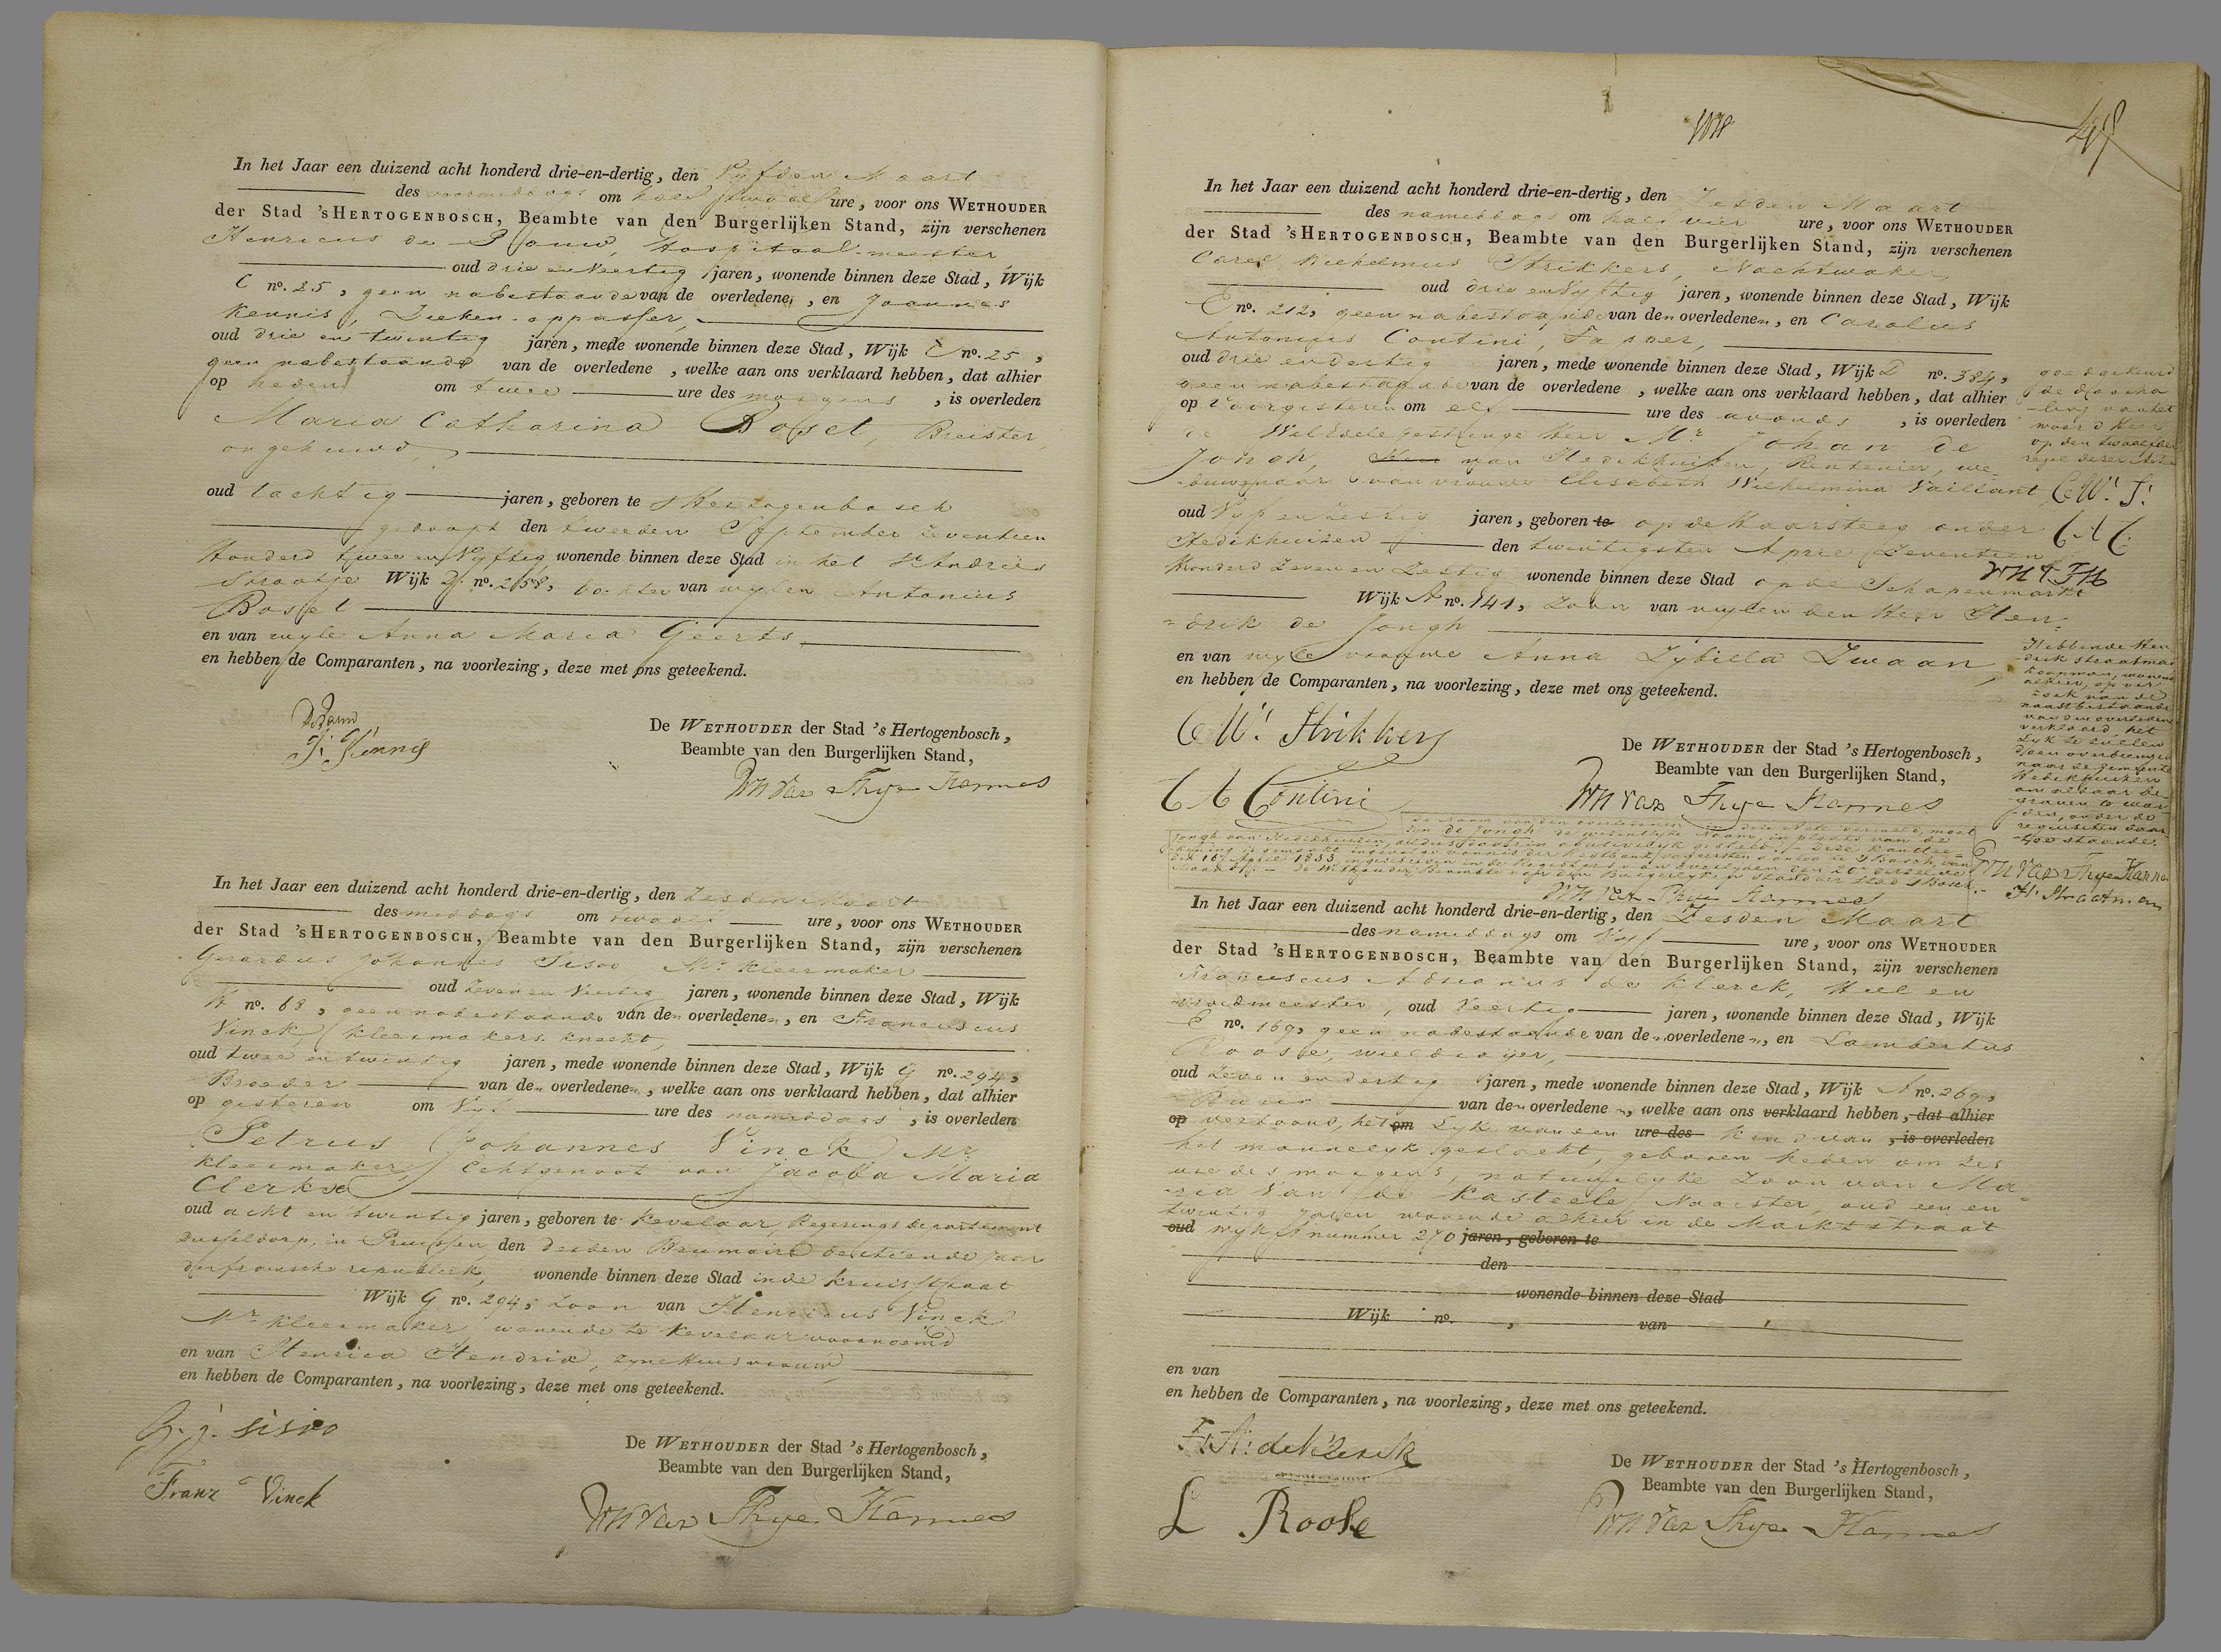 In het Jaar een duizend acht honderd drie-en-dertig, den Vyfden Maart
des voormiddags om half twaalf ure, voor ons WETHOUDER
der Stad 'sHERTOGENBOSCH, Beambte van den Burgerlijken Stand, zijn verschenen
Henricus de Hospitaal-meester
oud drie en Veertig jaren, wonende binnen deze Stad, Wijk
C no. 25, geen nabestaande van de overledene, en Joannes
Kennis, Zieken-oppasser,
oud drie en twintig jaren, mede wonende binnen deze Stad, Wijk C no. 25,
geen nabestaande van de overledene, welke aan ons verklaard hebben, dat alhier
op heden om twee ure des morgens, is overleden
Maria Catharina Bosel, Breister,
ongehuwd,
oud tachtig jaren, geboren te 'sHertogenbosch
gedoopt den tweeden September Zeventien
Honderd twee en Vyftig wonende binnen deze Stad in het St Andries
Straatje Wijk D. no. 258, dochter van wylen Antonius
Bosel
en van wyle Anna Maria Geerts,
en hebben de Comparanten, na voorlezing, deze met ons geteekend.
J: Kennis
De WETHOUDER der Stad 's Hertogenbosch,
Beambte van den Burgerlijken Stand,
WH van Thye Hannes
In het Jaar een duizend acht honderd drie-en-dertig, den Zesden Maart
des middags om twaalf ure, voor ons WETHOUDER
der Stad 'sHERTOGENBOSCH, Beambte van den Burgerlijken Stand, zijn verschenen
Gerardus Johannes Sisoo Mr. Kleermaker
oud Zeven en Veertig jaren, wonende binnen deze Stad, Wijk
H no. 68, geen nabestaande van den overledenen, en Franciscus
Vinck, kleermakers knecht,
oud twee en twintig jaren, mede wonende binnen deze Stad, Wijk G no. 294,
Broeder van den overledenen, welke aan ons verklaard hebben, dat alhier
op gisteren om Vyf ure des namiddags, is overleden
Petrus Johannes Vinck, Mr.
kleermaker, Echtgenoot van Jacoba Maria
Clerkx
oud acht en twintig jaren, geboren te Kevelaar, Regerings departement
Dusseldorp, in Pruissen den Brumaire jaar
der fransche republiek, wonende binnen deze Stad in de kruisstraat
Wijk G no. 294, Zoon van Henricus Vinck
Mr. Kleermaker, wonende te Kevelaar voornoemd
en van Henrica Hendrix, zyne Huisvrouw
en hebben de Comparanten, na voorlezing, deze met ons geteekend.
G. J. Sisoo
Franz Vinck
De WETHOUDER der Stad 's Hertogenbosch,
Beambte van den Burgerlijken Stand,
WH van Thye Hannes
In het Jaar een duizend acht honderd drie-en-dertig, den Zesden Maart
des namiddags om half vier ure, voor ons WETHOUDER
der Stad 'sHERTOGENBOSCH, Beambte van den Burgerlijken Stand, zijn verschenen
Carel Wilhelmus Strikkers, Nachtwaker,
oud drie en Vyftig jaren, wonende binnen deze Stad, Wijk
E no. 212, geen nabestaande van den overledenen, en Carolus
Antonius Contini, Tapper,
oud drie en dertig jaren, mede wonende binnen deze Stad, Wijk D no. 384,
geen nabestaande van de overledene, welke aan ons verklaard hebben, dat alhier
op Voorgisteren om elf ure des avonds, is overleden
de WelEdele gestrenge Heer Mr. Johan de
Jongh, Heer van Hedikhuizen, Rentenier, we-
duwenaar van vrouwe Elisabeth Wilhelmina Vaillant,
oud Vyf en Zestig jaren, geboren te op de Haarsteeg onder
Hedikhuizen den twintigsten April Zeventien
Honderd Zeven en Zestig wonende binnen deze Stad op de Schapenmarkt
Wijk A no. 141, Zoon van wylen den Heer Hen-
drik de Jongh
en van wyle vrouwe Anna Zybilla Zwaan,
en hebben de Comparanten, na voorlezing, deze met ons geteekend.
CW. Strikkers
C A Contini
De WETHOUDER der Stad 's Hertogenbosch,
Beambte van den Burgerlijken Stand,
WH van Thye Hannes
goedgekeurd
de doorha-
ling van het
woord Heer
op den twaalfden
regel dezer Acte
C.W. S.
C A C
WH v. T H
Hebbende Hen-
drik Straatman
koopman, wonende
alhier, op ver-
zoek van de
naastbestaande
van den overledene
verklaard, het
Lyk te zullen
doen overbrengen
naar de gemeente
Hedikhuizen
om aldaar be-
graven te wor-
den, onder de
requisiten daar-
toe staande.
WH van Thye Hannes
H. Straatman
de Naam van den overledenen in deze Acte vermeld, moet
zyn de Jongh de wezentlyke Naam, in plaats van de
Jongh van Hedikhuizen, aldus daarin abusivelyk gesteld. - Deze kanttee-
kening is gemaakt ingevolge vonnis der Regtbank van eersten aanleg te 'sBosch, van
den 16 April 1833, ingeschreven in de Registers van overlyden den 20 derzelve
maand. - De Wethouder, Beambte van den Burgerlyken Stand der Stad 'sBosch. -
WH van Thye Hannes
In het Jaar een duizend acht honderd drie-en-dertig, den Zesden Maart
des namiddags om Vyf ure, voor ons WETHOUDER
der Stad 'sHERTOGENBOSCH, Beambte van den Burgerlijken Stand, zijn verschenen
Franciscus Adrianus de Klerck, Heel en
vroedmeester, oud Veertig jaren, wonende binnen deze Stad, Wijk
E no. 169, geen nabestaande van den overledenen, en Lambertus
Roose, wieldraijer,
oud Zeven en dertig jaren, mede wonende binnen deze Stad, Wijk A no. 269,
Buur van den overledenen, welke aan ons verklaard hebben, dat alhier
op vertoond, het om Lyk van een ure des kind van, is overleden
het mannelyk geslacht, geboren heden om zes
ure des morgens, natuurlyke Zoon van Ma-
ria Van de Kasteele Naaister, oud een en
twintig jaren wonende alhier in de Marktstraat
oud wyk A nummer 270 jaren, geboren te
den
wonende binnen deze Stad
Wijk no. , van
en van
en hebben de Comparanten, na voorlezing, deze met ons geteekend.
F: A: de Klerck
L Roose
De WETHOUDER der Stad 's Hertogenbosch,
Beambte van den Burgerlijken Stand,
WH van Thye Hannes